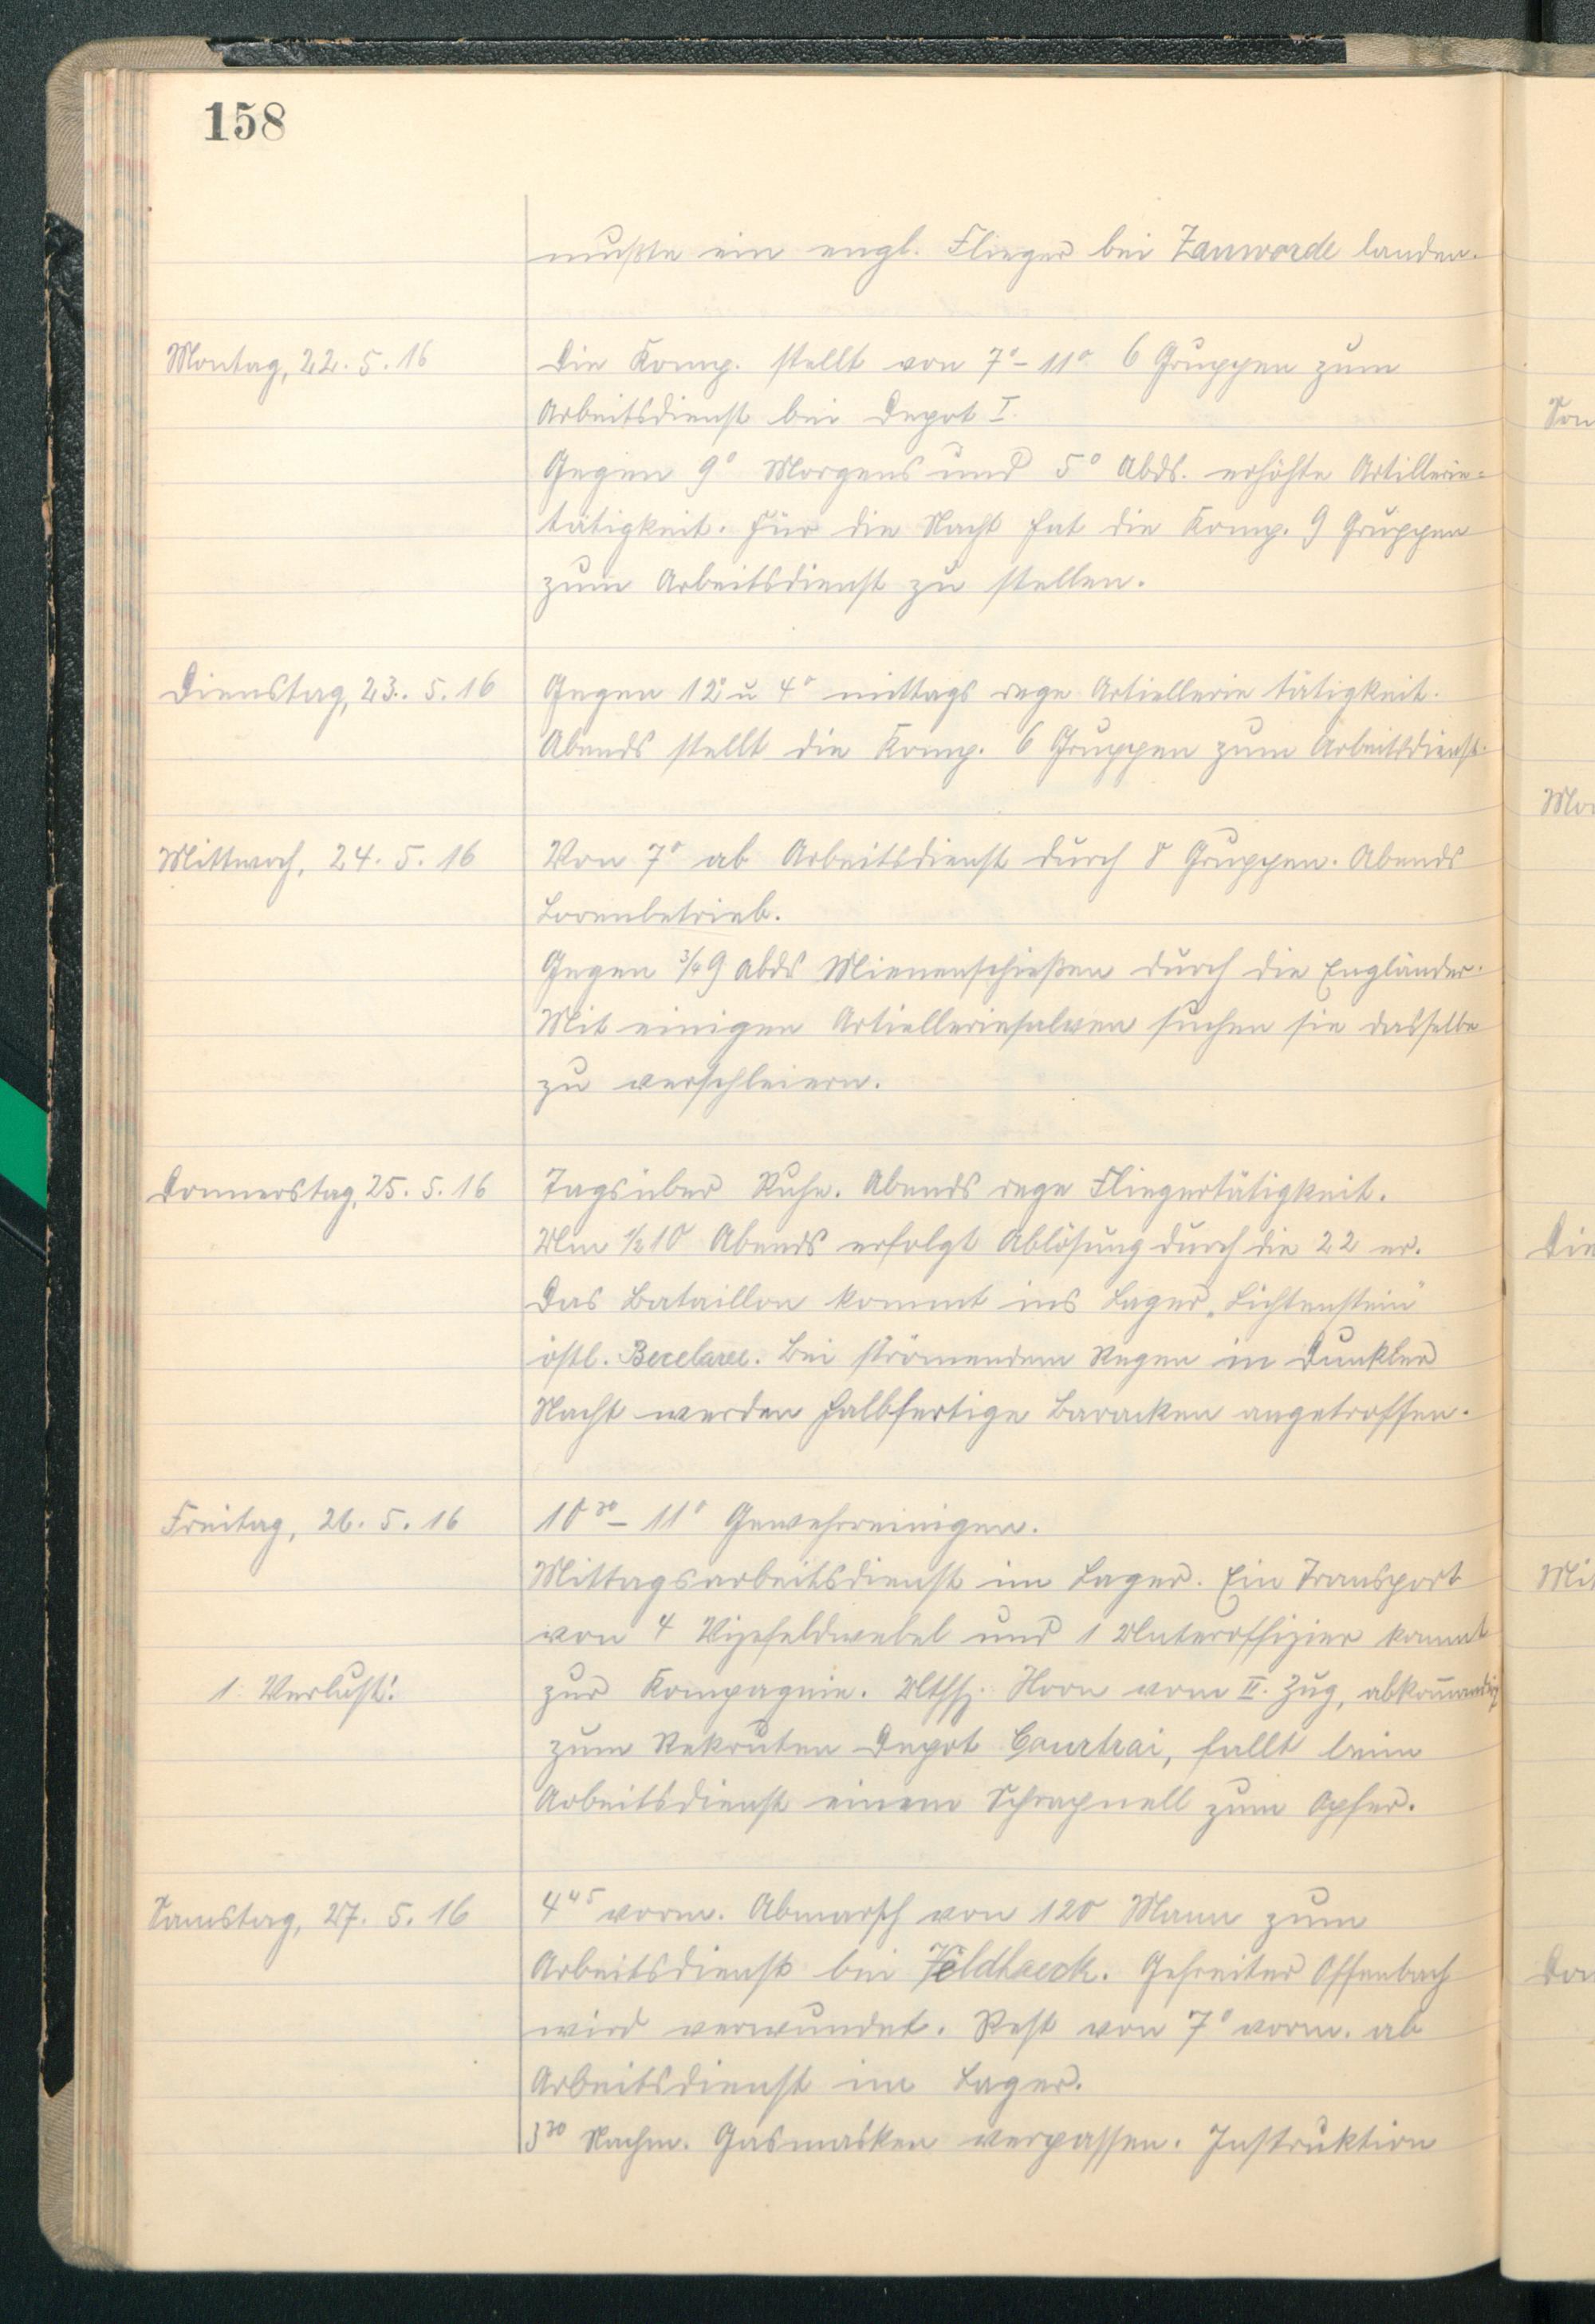 158
mußte ein engl. Flieger bei Zanworde landen.
Montag, 22. 5. 16
Die Komp. stellt von 7⁰ – 11⁰ 6 Gruppen zum
Arbeitsdienst bei Depot I.
Gegen 9⁰ Morgens und 5⁰ Abds. erhöhte Artillerie=
tätigkeit. Für die Nacht hat die Komp. 9 Gruppen
zum Arbeitsdienst zu stellen.
Dienstag, 23. 5. 16
Gegen 12⁰ u 4⁰ mittags rege Artiellerie tätigkeit.
Abends stellt die Komp. 6 Gruppen zum Arbeitsdienst.
Mittwoch, 24. 5. 16
Von 7⁰ ab Arbeitsdienst durch 8 Gruppen. Abends
Lorenbetrieb.
Gegen 3/4 9 abds Mienenschießen durch die Engländer.
Mit einigen Artielleriesalven suchen sie dasselbe
zu verschleiern.
Donnerstag, 25. 5. 16
Tagsüber Ruhe. Abends rege Fliegertätigkeit.
Um 1/2 10 Abends erfolgt Ablösung durch die 22 er.
Das Bataillon kommt ins Lager „Lichtenstein"
östl. Becelaree. Bei strömendem Regen in dunkler
Nacht werden halbfertige Baracken angetroffen.
Freitag, 26. 5. 16
10³⁰ – 11⁰ Gewehrreinigen.
Mittagsarbeitsdienst im Lager. Ein Transport
von 4 Vizefeldwebel und 1 Unteroffizier kommt
1. Verlust!
zur Kompagnie. Utffz. Horn vom II. Zug, abkom̄andiert
zum Rekruten Depot Courtrai, fällt beim
Arbeitsdienst einem Schrapnell zum Opfer.
Samstag, 27. 5. 16
4⁴⁵ vorm. Abmarsch von 120 Mann zum
Arbeitsdienst bei Veldhaeck. Gefreiter Offenbach
wird verwundet. Rest von 7⁰ vorm. ab
Arbeitsdienst im Lager.
3³⁰ Nachm. Gasmasken verpassen. Instruktion